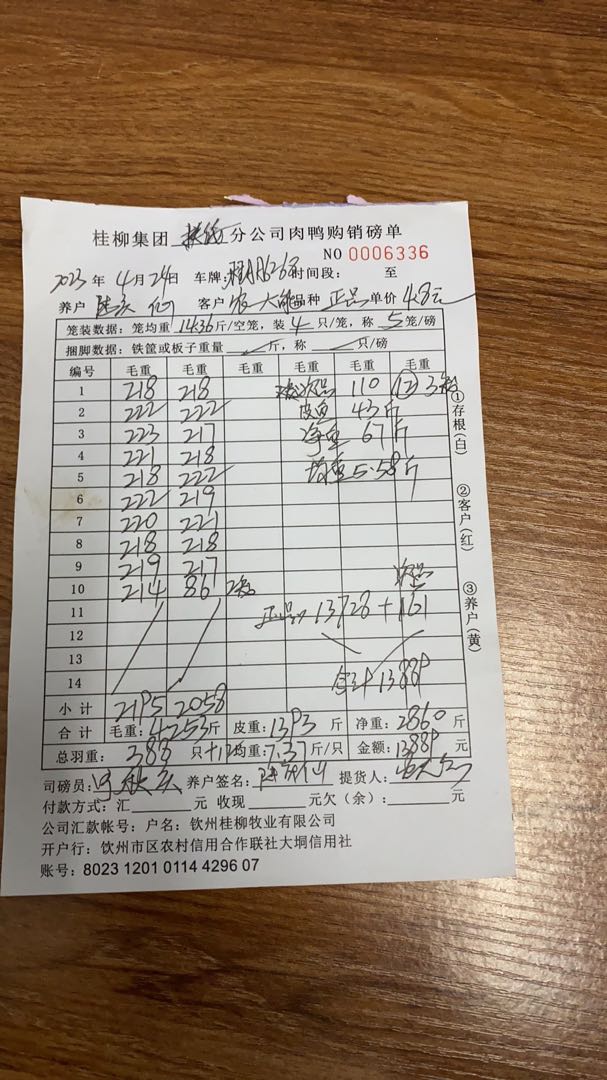 桂柳集团 分公司肉鸭购销磅单
NO 0006336
2023 年 4 月 24 日 车牌: 时间段: 至
养户 客户 品种 正品 单价 4.8元
笼装数据: 笼均重 14.36 斤/空笼, 装 4 只/笼, 称 5 笼/磅
捆脚数据: 铁筐或板子重量 斤, 称 只/磅
编号 毛重 毛重 毛重 毛重 毛重 毛重
1 218 218 次品 110 ⑫ 3
2 222 222 皮重 43斤
3 223 217 净重 67斤
4 221 218 均重 5.58斤
5 218 222
6 222 219
7 220 221
8 218 218
9 219 217
10 214 86 2 次品
11 正品 13728 + 161
12
13
14 合计 13889
小计 2195 2058
合计 毛重: 4253 斤 皮重: 1393 斤 净重: 2860 斤
总羽重: 388 只+12 均重: 7.37 斤/只 金额: 13889 元
司磅员: 养户签名: 提货人:
付款方式: 汇 元 收现 元欠(余): 元
公司汇款帐号: 户名: 钦州桂柳牧业有限公司
开户行: 钦州市区农村信用合作联社大垌信用社
账号: 8023 1201 0114 4296 07
①存根(白)
②客户(红)
③养户(黄)